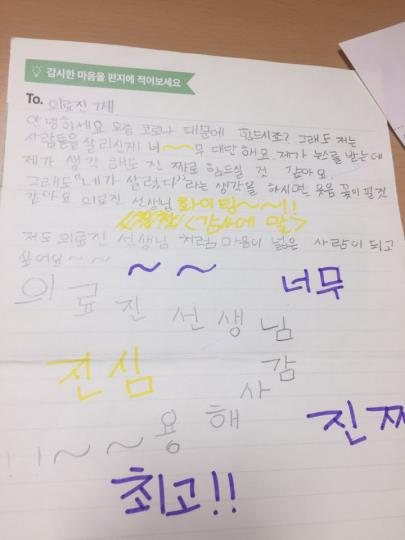 감사한 마음을 편지에 적어보세요
To. 의료진 께
안녕하세요 요즘 코로나 때문에 힘드시죠? 그래도 저는
사람들을 살리신지 너~~무 대단해요. 제가 뉴스를 받는데
제가 생각해도 진짜로 힘드실 것 같아요.
그래도 "내가 살렸다"라는 생각을 하시면 웃음 꽃이 필것
같아요 의료진 선생님 화이팅~~!!
<감사에 말>
저도 의료진 선생님 처럼 마음이 넓은 사람이 되고
싶어요~~
~~ 너무
의료진 선생님
진심
감사
해용~~!!
진짜
최고!!